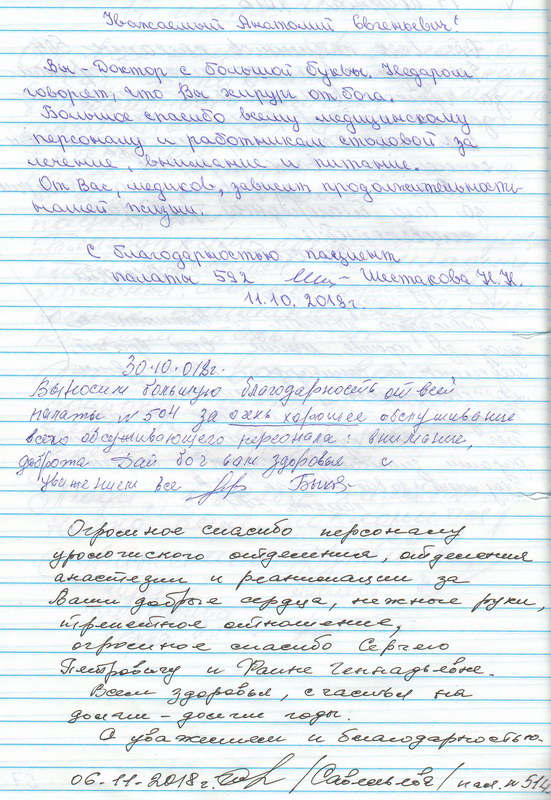 Уважаемый Анатолий Евгеньевич!
Вы - Доктор с большой буквы. Недаром
говорят, что Вы хирург от бога.
Большое спасибо всему медицинскому
персоналу и работникам столовой за
лечение, внимание и питание.
От Вас, медиков, зависит продолжительность
нашей жизни.
С благодарностью пациент
палаты 592 - Шестакова Н.Н.
11.10.2018г.
30.10.018г.
Выносим большую благодарность от всей
палаты №504 за очень хорошее обслуживание
всего обслуживающего персонала: внимание,
доброта Дай бог вам здоровья с
уважением все
Огромное спасибо персоналу
урологического отделения, отделения
анастезии и реанимации за
Ваши добрые сердца, нежные руки,
трепетное отношение,
огромное спасибо Сергею
Петровичу и Фаине Геннадьевне.
Всем здоровья, счастья на
долгие-долгие годы.
С уважением и благодарностью.
06.11-2018г. /Савельева/ пал. №514.